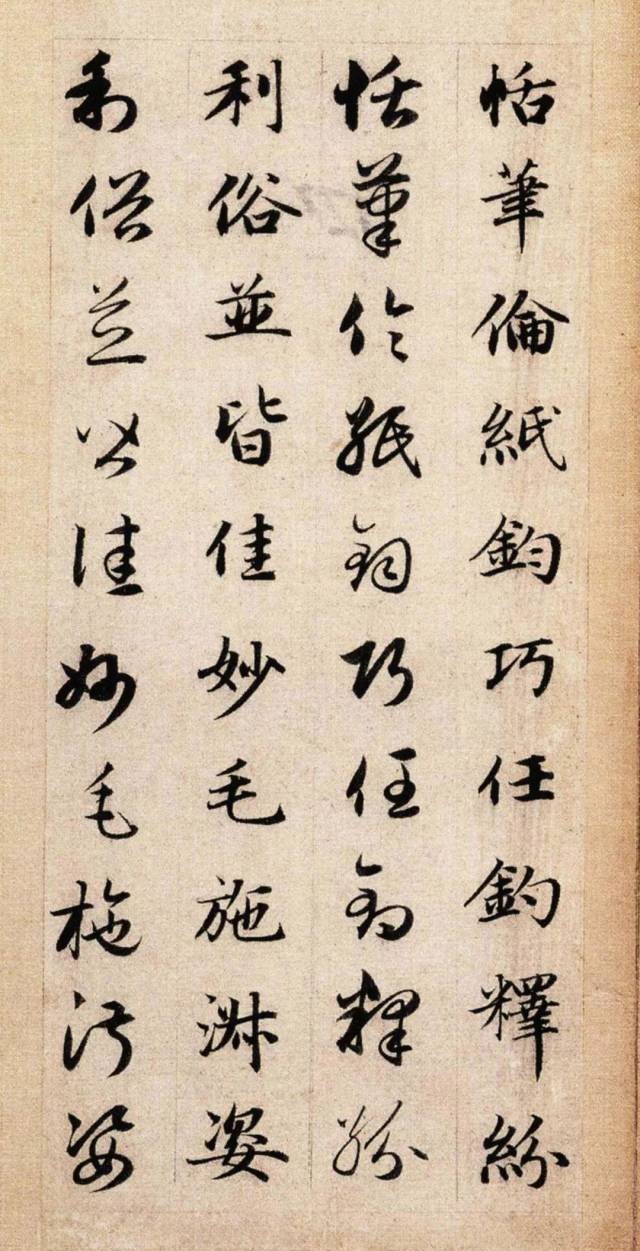 恬筆倫紙鈞巧任釣釋紛
恬筆倫紙鈞巧任釣釋紛
利俗並皆佳妙毛施淑姿
利俗並皆佳妙毛施淑姿